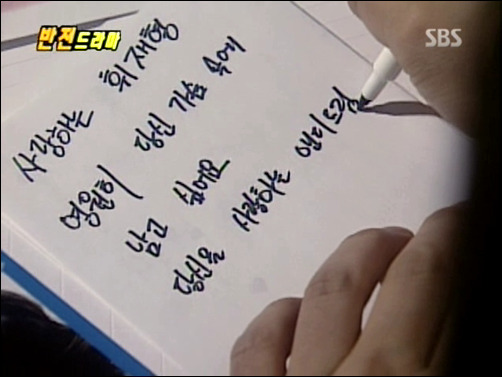 반전드라마
SBS
사랑하는 휘재형
영원히 당신 가슴 속에
남고 싶어요
당신을 사랑하는 앤디드림